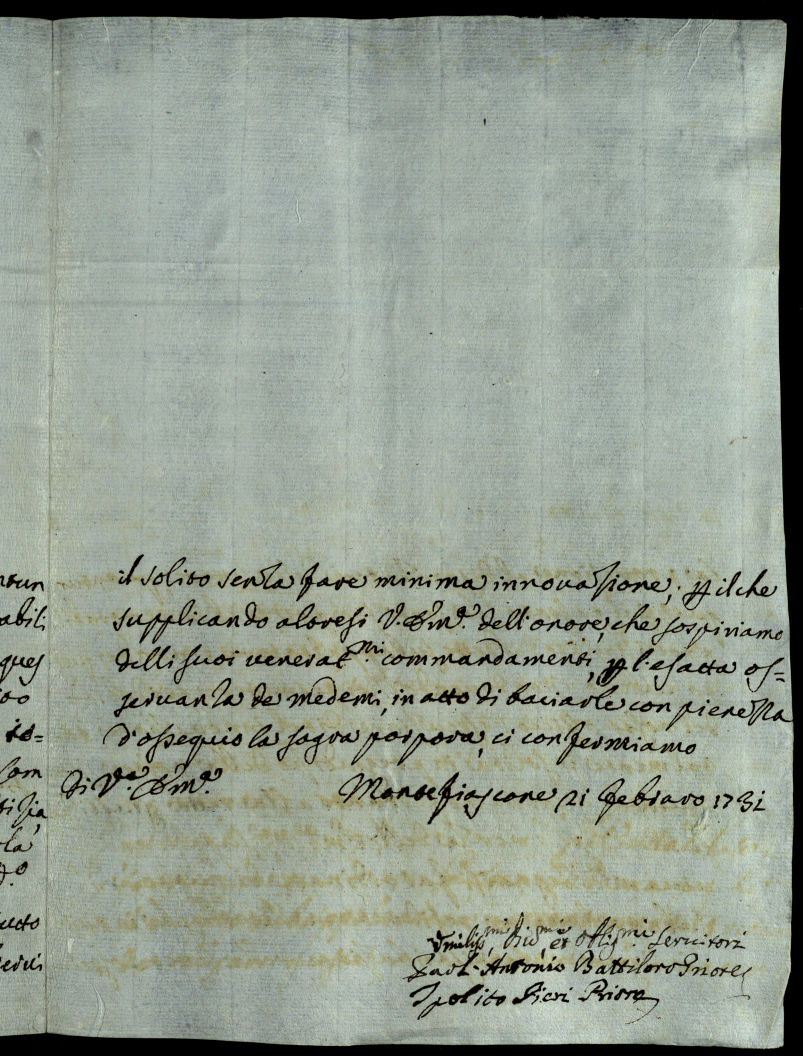 ntun
abili
ques
il solito senza fare minima innovazione; p il che
supplicando altresi V. Em.ª dell'onore, che sospiriamo
delli suoi venerat.mi commandamenti, p l'esatta os=
servanza de medemi, in atto di baciarle con pienezza
d'ossequio la sagra porpora, ci confermiamo
Di V.ra Em.ª
Montefiascone 21 Febraro 1731
Umiliss.mi, et Oblig.mi Servitori
Paol' Antonio Battiloro Priore
Ipolito Pieri Priore